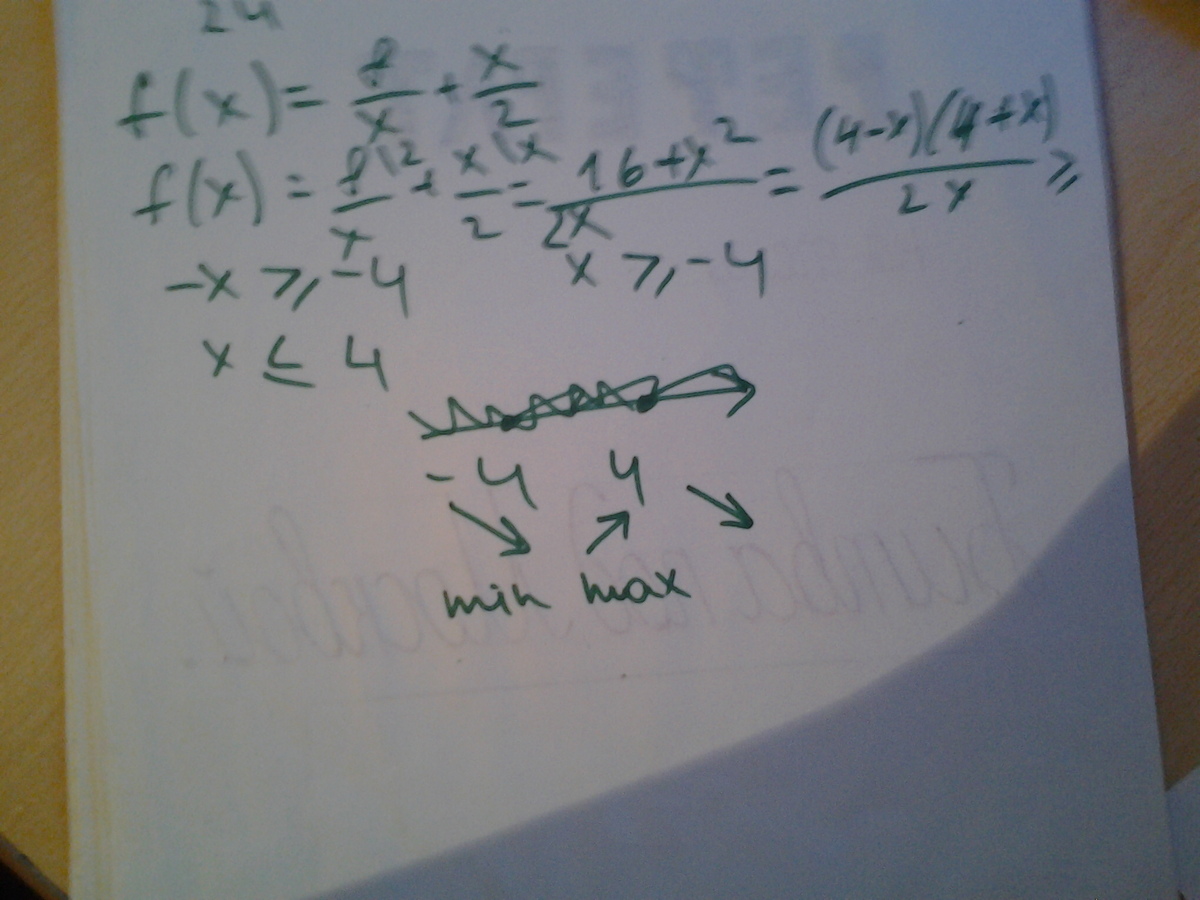 24
f(x) = 8/x + x/2
f(x) = 8\2/x + x\x/2 = 16+x²/2x = (4-x)(4+x)/2x ≥
-x ≥ -4 x ≥ -4
x ≤ 4
-4 4
min max